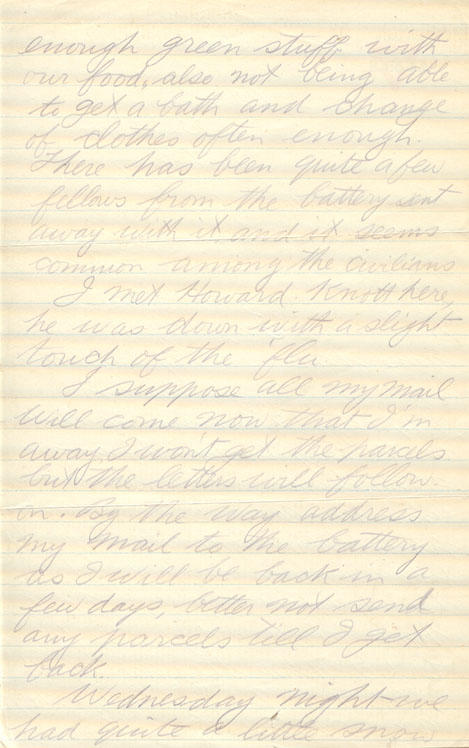 enough green stuff with
our food, also not being able
to get a bath and change
of clothes often enough.
There has been quite a few
fellows from the battery sent
away with it and it seems
common among the civilians
I met Howard Knott here,
he was down with a slight
touch of the 'flu
I suppose all my mail
will come now that I'm
away I won't get the parcels
but the letters will follow
on. By the way address
my mail to the battery
as I will be back in a
few days, better not send
any parcels till I get
back.
Wednesday night we
had quite a little snow